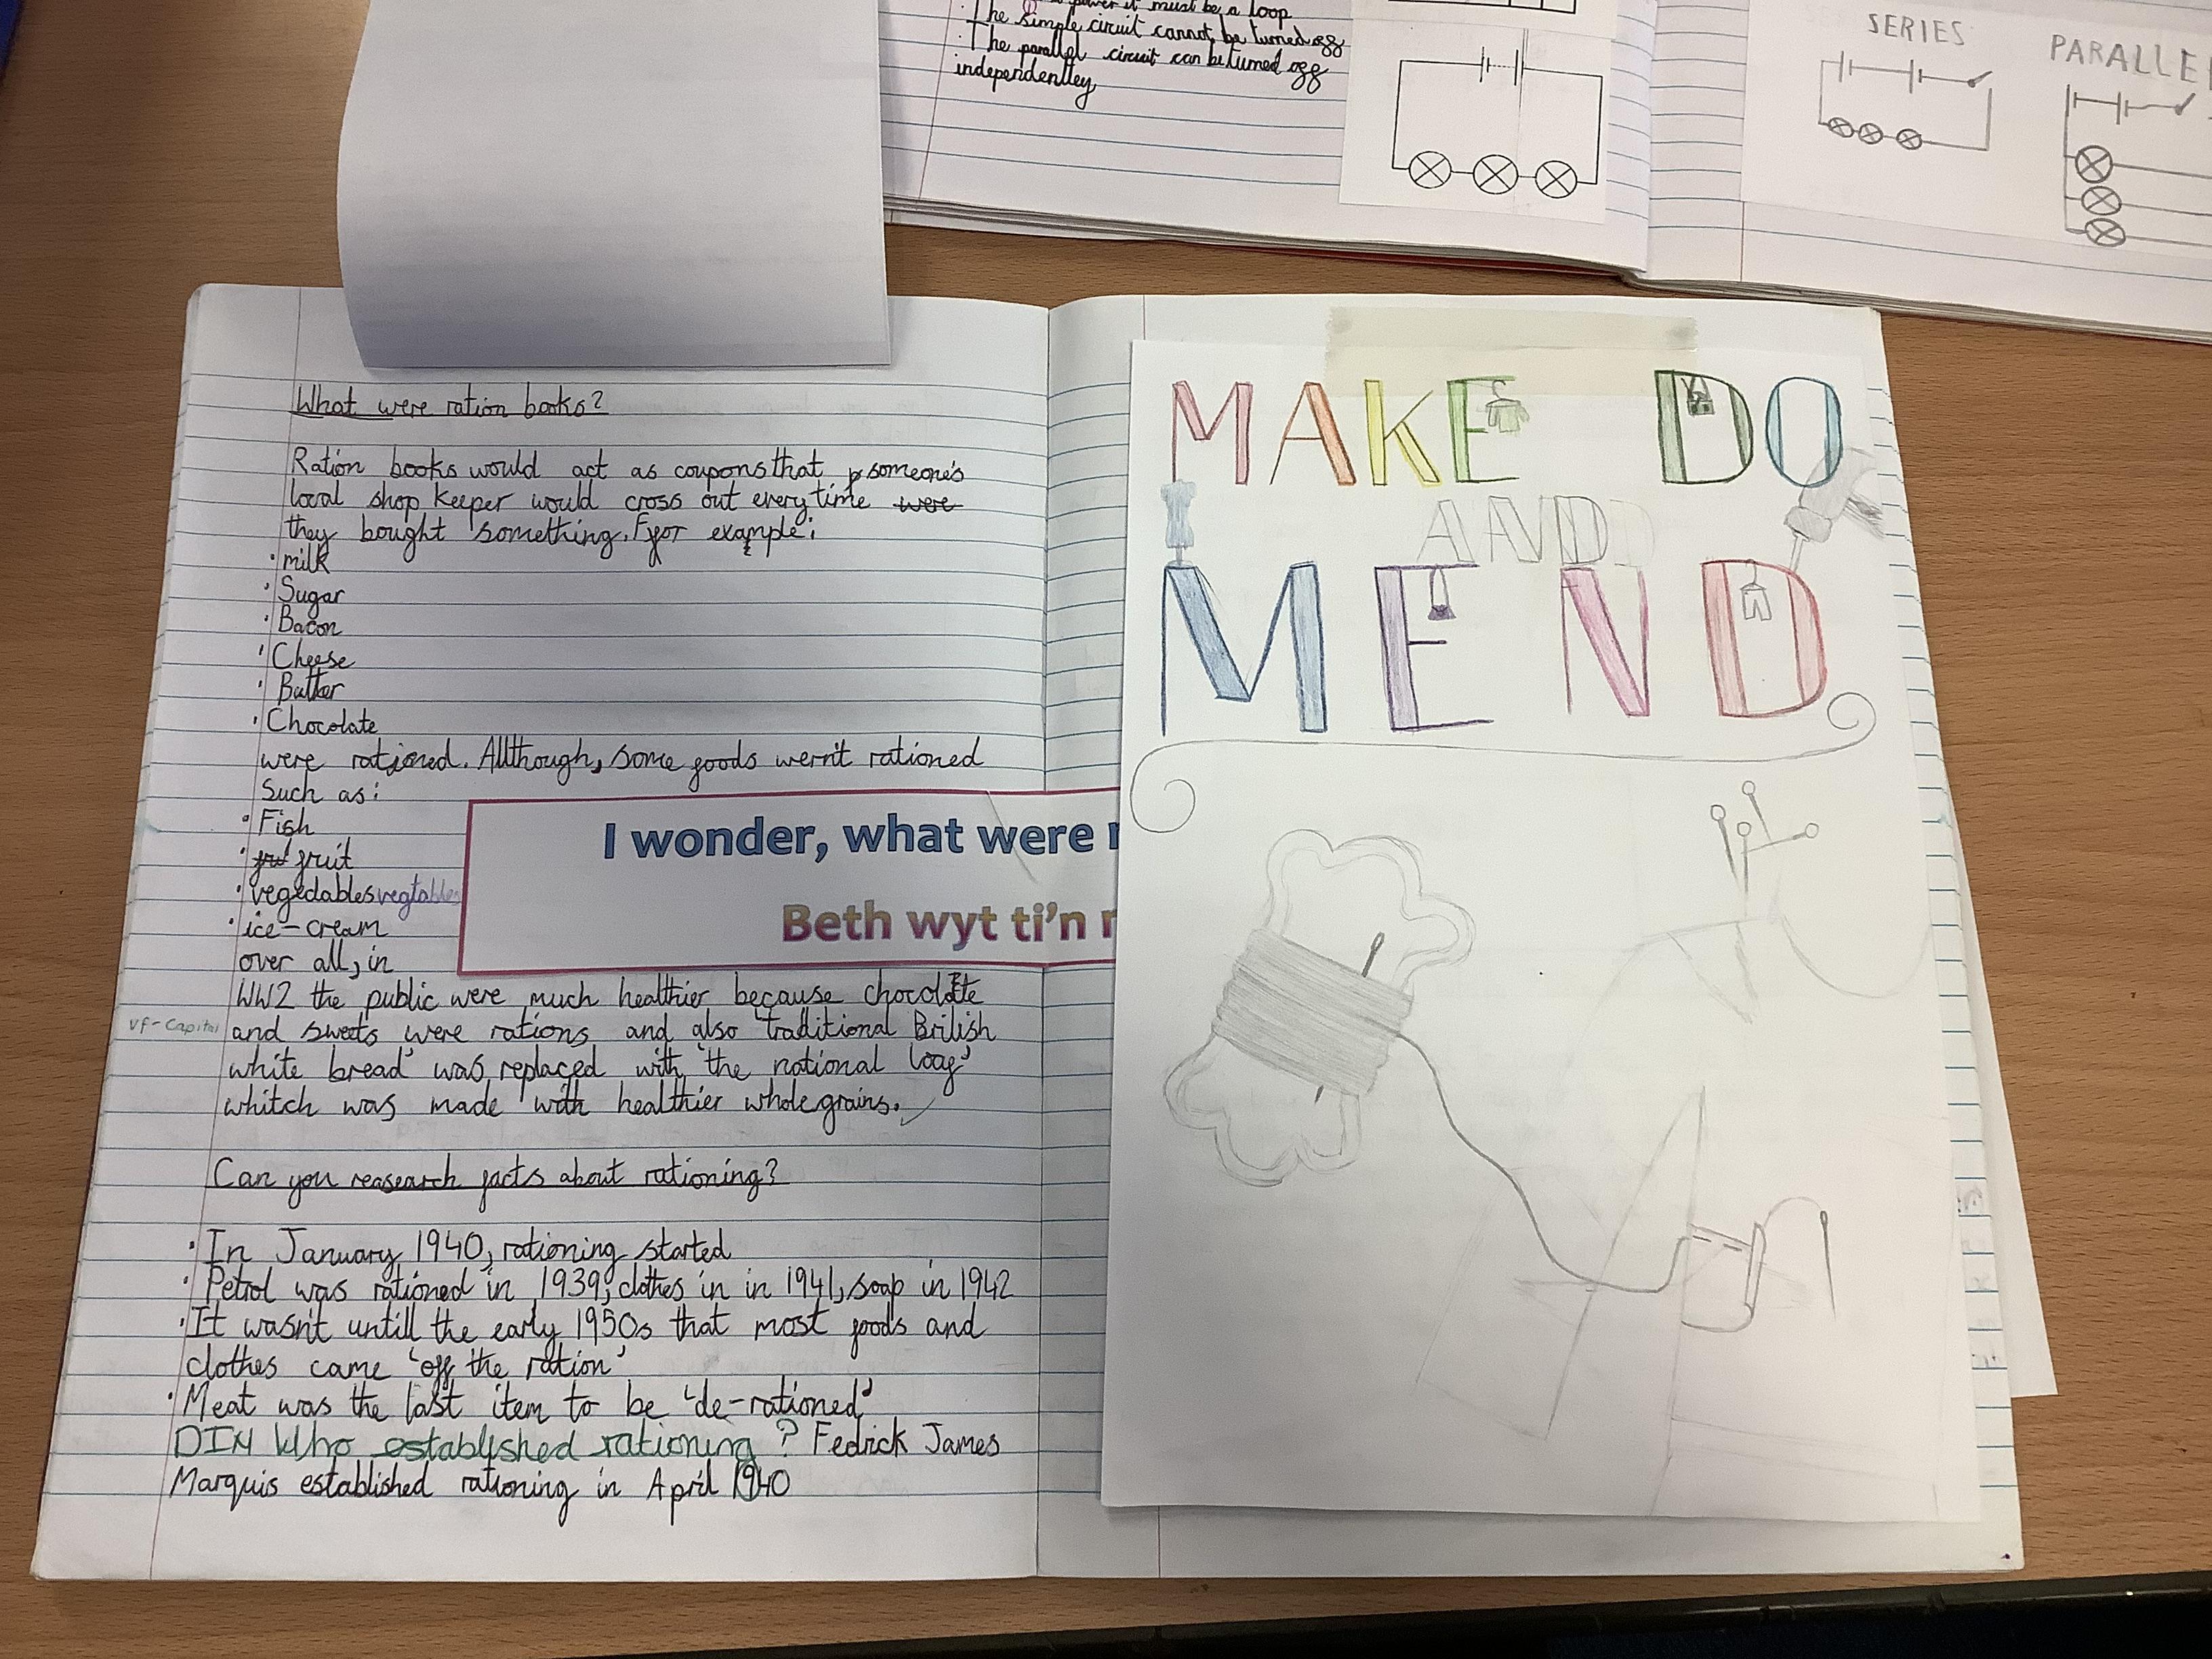 power it must be a loop
The simple circuit cannot be turned off
The parallel circuit can be turned off
independentley
SERIES
PARALLE
What were ration books?
Ration books would act as coupons that someone's
local shop keeper would cross out everytime were
they bought something. For example:
• milk
• Sugar
• Bacon
• Cheese
• Butter
• Chocolate
were rationed. Allthough, some goods wern't rationed
Such as:
• Fish
• fru fruit
• vegedables vegtables
• ice-cream
over all, in
WW2 the public were much healthier because chocolate
and sweets were rations and also 'traditional British
white bread' was replaced with 'the national loaf'
whitch was made with healthier wholegrains.
vf-Capital
Can you reasearch facts about rationing?
• In January 1940, rationing started
• Petrol was rationed in 1939, clothes in in 1941, soap in 1942
• It wasn't untill the early 1950s that most goods and
clothes came 'off the ration'
• Meat was the last item to be 'de-rationed'
DIN Who established rationing? Fedrick James
Marquis established rationing in April 1940
I wonder, what were
Beth wyt ti'n
MAKE DO
AND
MEND